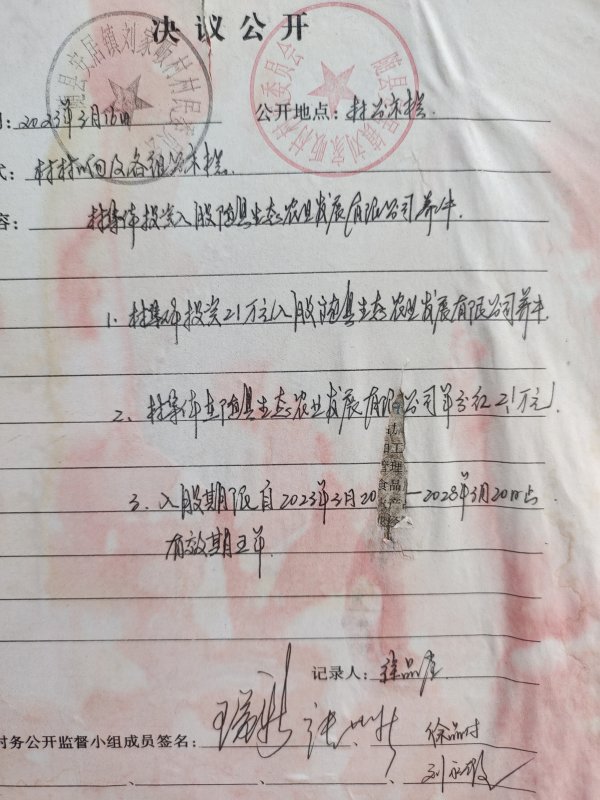 决议公开
随县安居镇刘家畈村村民委员会
随县安居镇刘家畈村 委员会
2023年3月18日 公开地点：村公示栏
村村响及各组公示栏
容： 村集体投资入股随县生态农业发展有限公司养牛.
1. 村集体投资21万元入股随县生态农业发展有限公司养牛.
2. 村集体在随县生态农业发展有限公司年分红2.1万元
3. 入股期限自2023年3月20 —2028年3月20日止
有效期五年.
工
理
品
食
产
记录人： 徐品
村务公开监督小组成员签名：
徐品村